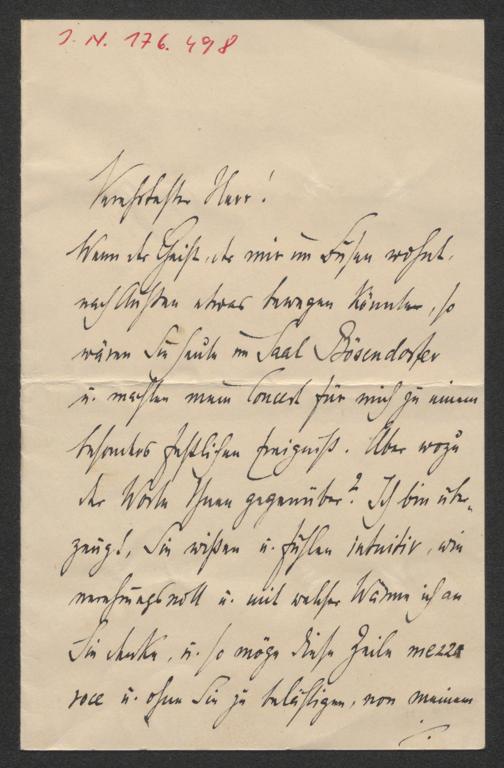 I. N. 176.498
Verehrtester Herr!
Wenn der Geist, der mir im Busen wohnt,
nach Außen etwas bewegen könnte, so
wären Sie heute im Saal Bösendorfer
u. machten mein Concert für mich zu einem
besonders festlichen Ereigniß. Aber wozu
der Worte Ihnen gegenüber? Ich bin über-
zeugt, Sie wißen u. fühlen intuitiv, wie
verehrungsvoll u. mit welcher Wärme ich an
Sie denke, u. so möge diese Zeile mezza
voce u. ohne Sie zu belästigen, von meinem